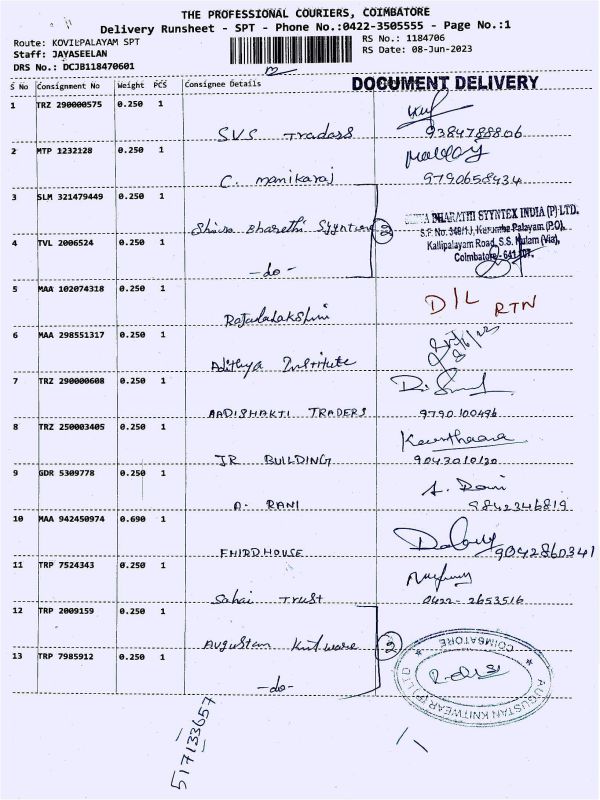 THE PROFESSIONAL COURIERS, COIMBATORE
Delivery Runsheet - SPT - Phone No.:0422-3505555 - Page No.:1
Route: KOVILPALAYAM SPT RS No.: 1184706
Staff: JAYASEELAN RS Date: 08-Jun-2023
DRS No.: DCJB118470601
S No Consignment No Weight PCS Consignee Details DOCUMENT DELIVERY
1 TRZ 290000575 0.250 1
SVS Traders 9384788806
2 MTP 1232128 0.250 1
C. Manikaraj 9790658434
3 SLM 321479449 0.250 1
Shiva Bharathi Syyntex 2
BHARATHI SYYNTEX INDIA (P) LTD.
S.F. No. 349/1J, Kurumba Palayam (P.O),
Kallipalayam Road, S.S. Kulam (Via),
Coimbatore - 641 107.
4 TVL 2006524 0.250 1
-do-
5 MAA 102074318 0.250 1
Rajalalakshmi D/L RTN
6 MAA 298551317 0.250 1
Adithya Institute
7 TRZ 290000608 0.250 1
AADISHAKTI TRADERS 9790100496
8 TRZ 250003405 0.250 1
JR BUILDING 9043010120
9 GDR 5309778 0.250 1
A. RANI A. Rani 9842346819
10 MAA 942450974 0.690 1
9042860341
11 TRP 7524343 0.250 1
Sahai Trust 0422-2653516
12 TRP 2009159 0.250 1
Augustan Knitware 2
13 TRP 7985912 0.250 1
-do-
AUGUSTAN KNITWEAR (P) LTD
COIMBATORE
517133657